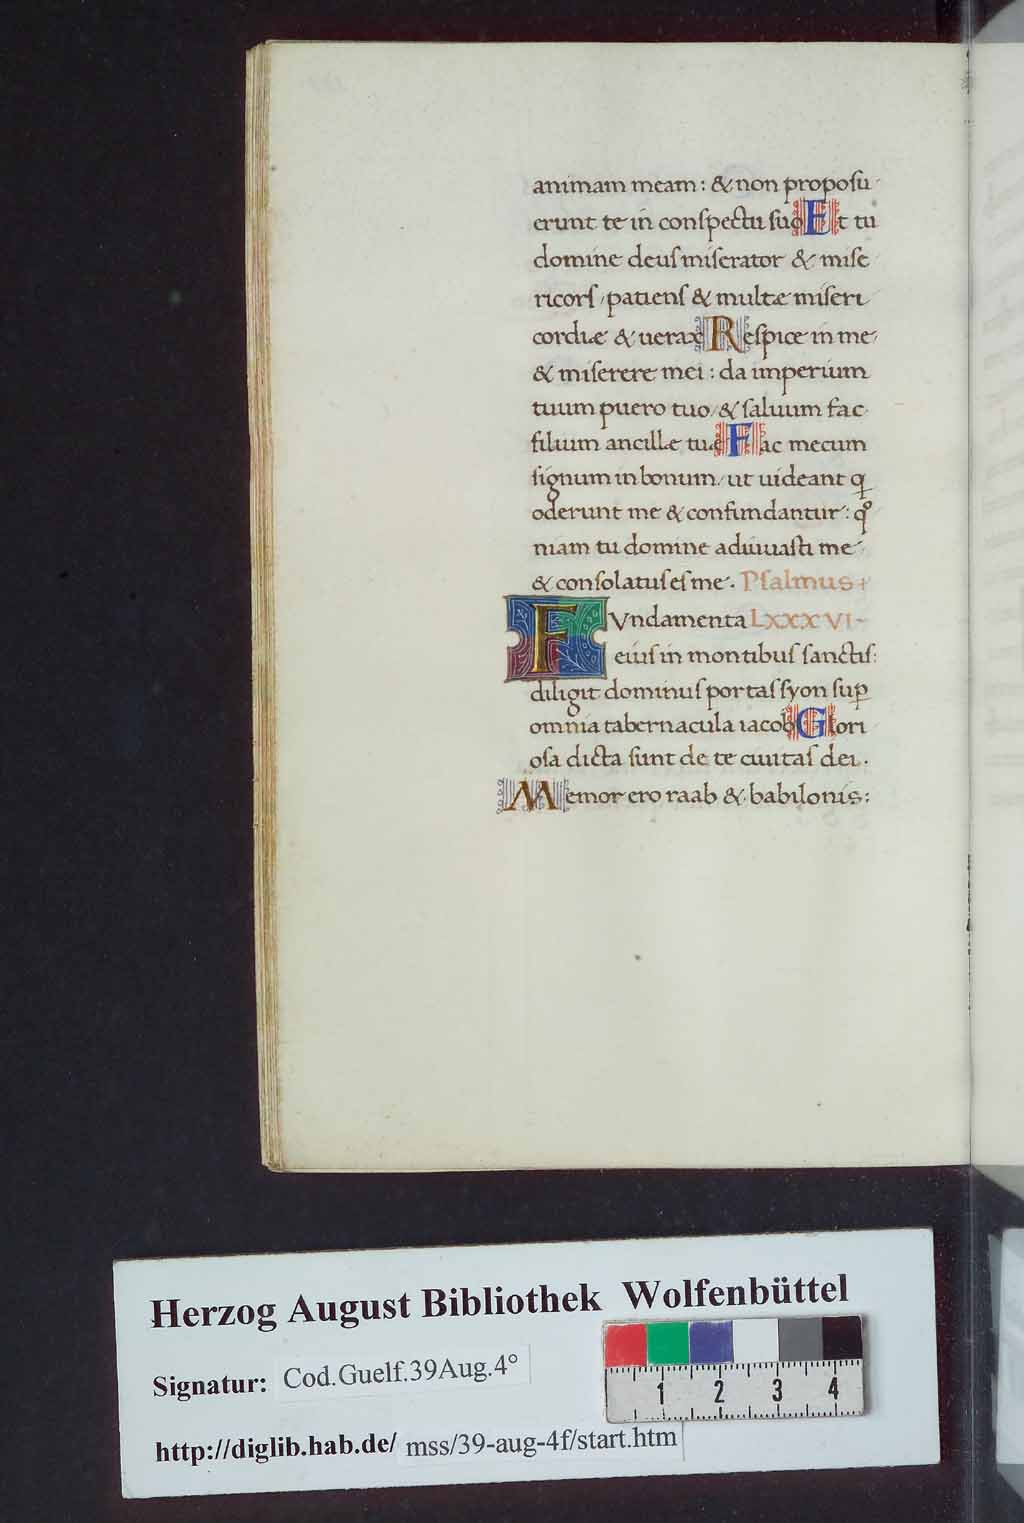 animam meam: & non proposu
erunt te in conspectu suo Et tu
domine deus miserator & mise
ricors / patiens & multæ miseri
cordiæ & uerax Respice in me
& miserere mei: da imperium
tuum puero tuo / & saluum fac
filium ancillæ tuę Fac mecum
signum in bonum / ut uideant q
oderunt me & confundantur: qº
niam tu domine adiuuasti me
& consolatus es me. Psalmus
FVndamenta LXXXVI
eius in montibus sanctis:
diligit dominus portas syon sup
omnia tabernacula iacob Glori
osa dicta sunt de te ciuitas dei.
Memor ero raab & babilonis:
Herzog August Bibliothek Wolfenbüttel
Signatur: Cod.Guelf.39Aug.4°
http://diglib.hab.de/ mss/39-aug-4f/start.htm
1 2 3 4